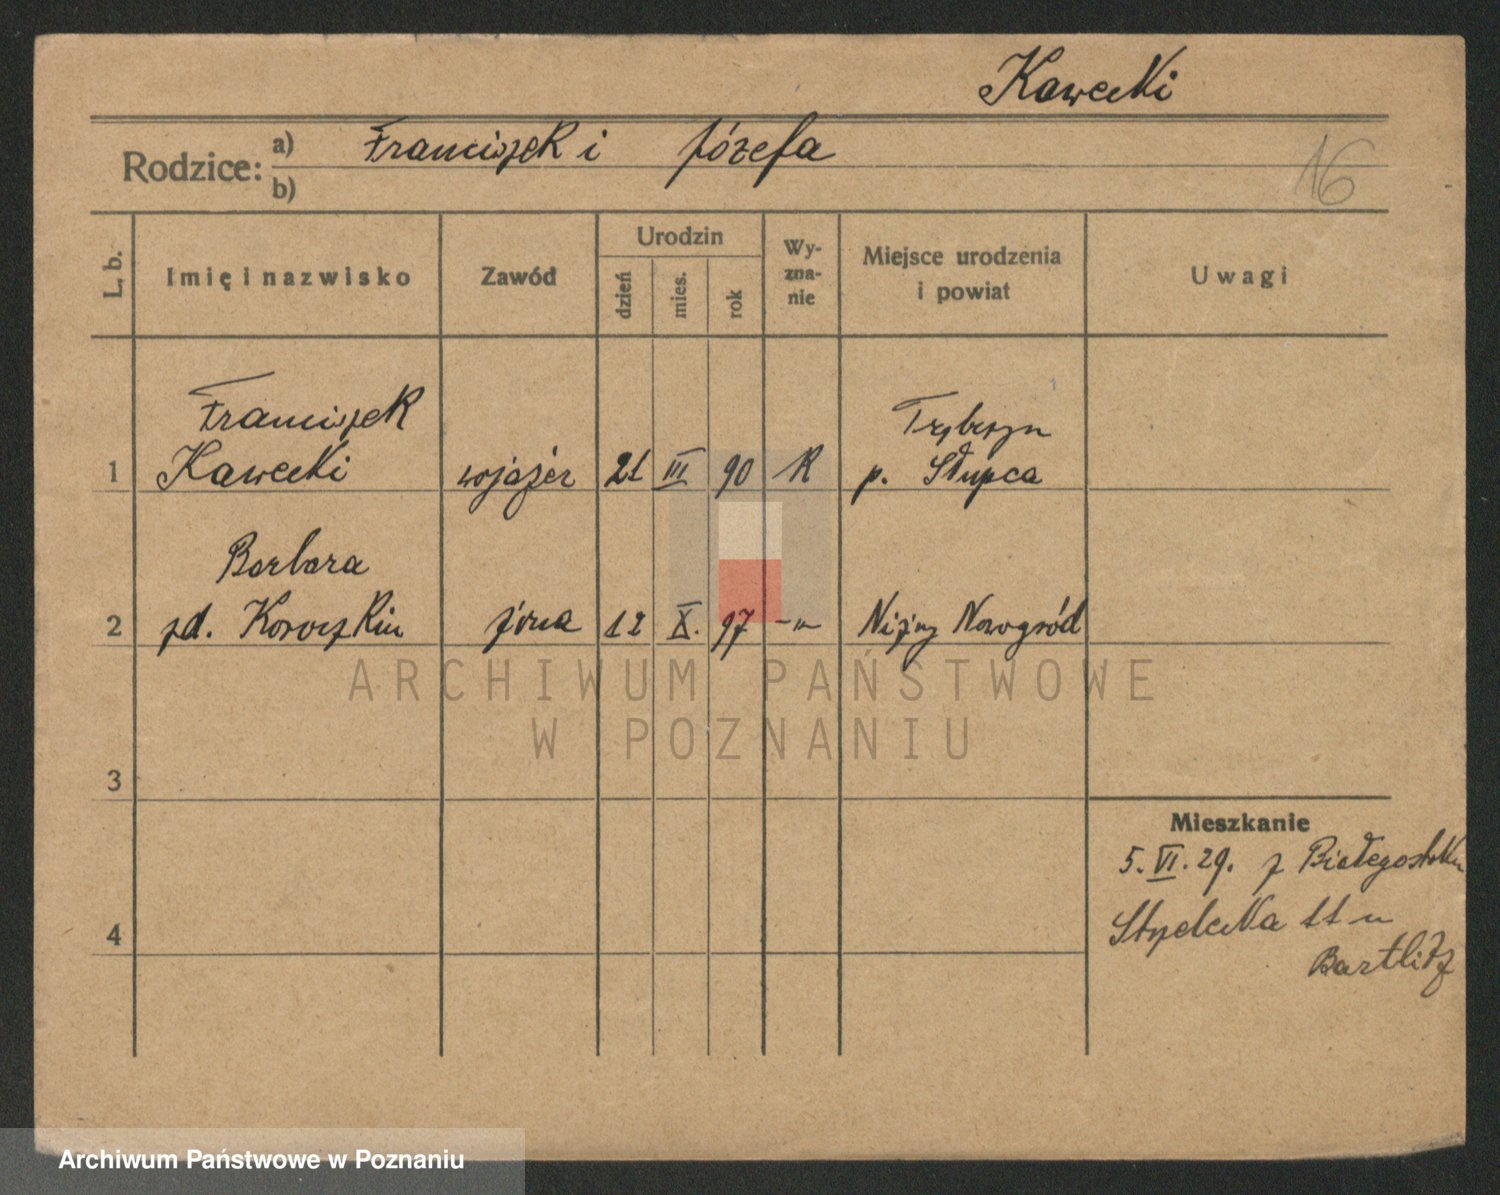 Kawecki
Rodzice: a) Franciszek i Józefa
b)
16
L. b.
Imię i nazwisko
Zawód
Urodzin
dzień
mies.
rok
Wy-
zna-
nie
Miejsce urodzenia
i powiat
Uwagi
Franciszek
Kawecki
1
wojażer
21
III
90
R
p. Słupca
Barbara
2
zd.
żona
12
X.
97
-"-
Niżny Nowogród
ARCHIWUM PAŃSTWOWE
W POZNANIU
3
4
Mieszkanie
5. VI. 29. z Białegostoku
Strzelecka 11 u
Bartlitz
Archiwum Państwowe w Poznaniu